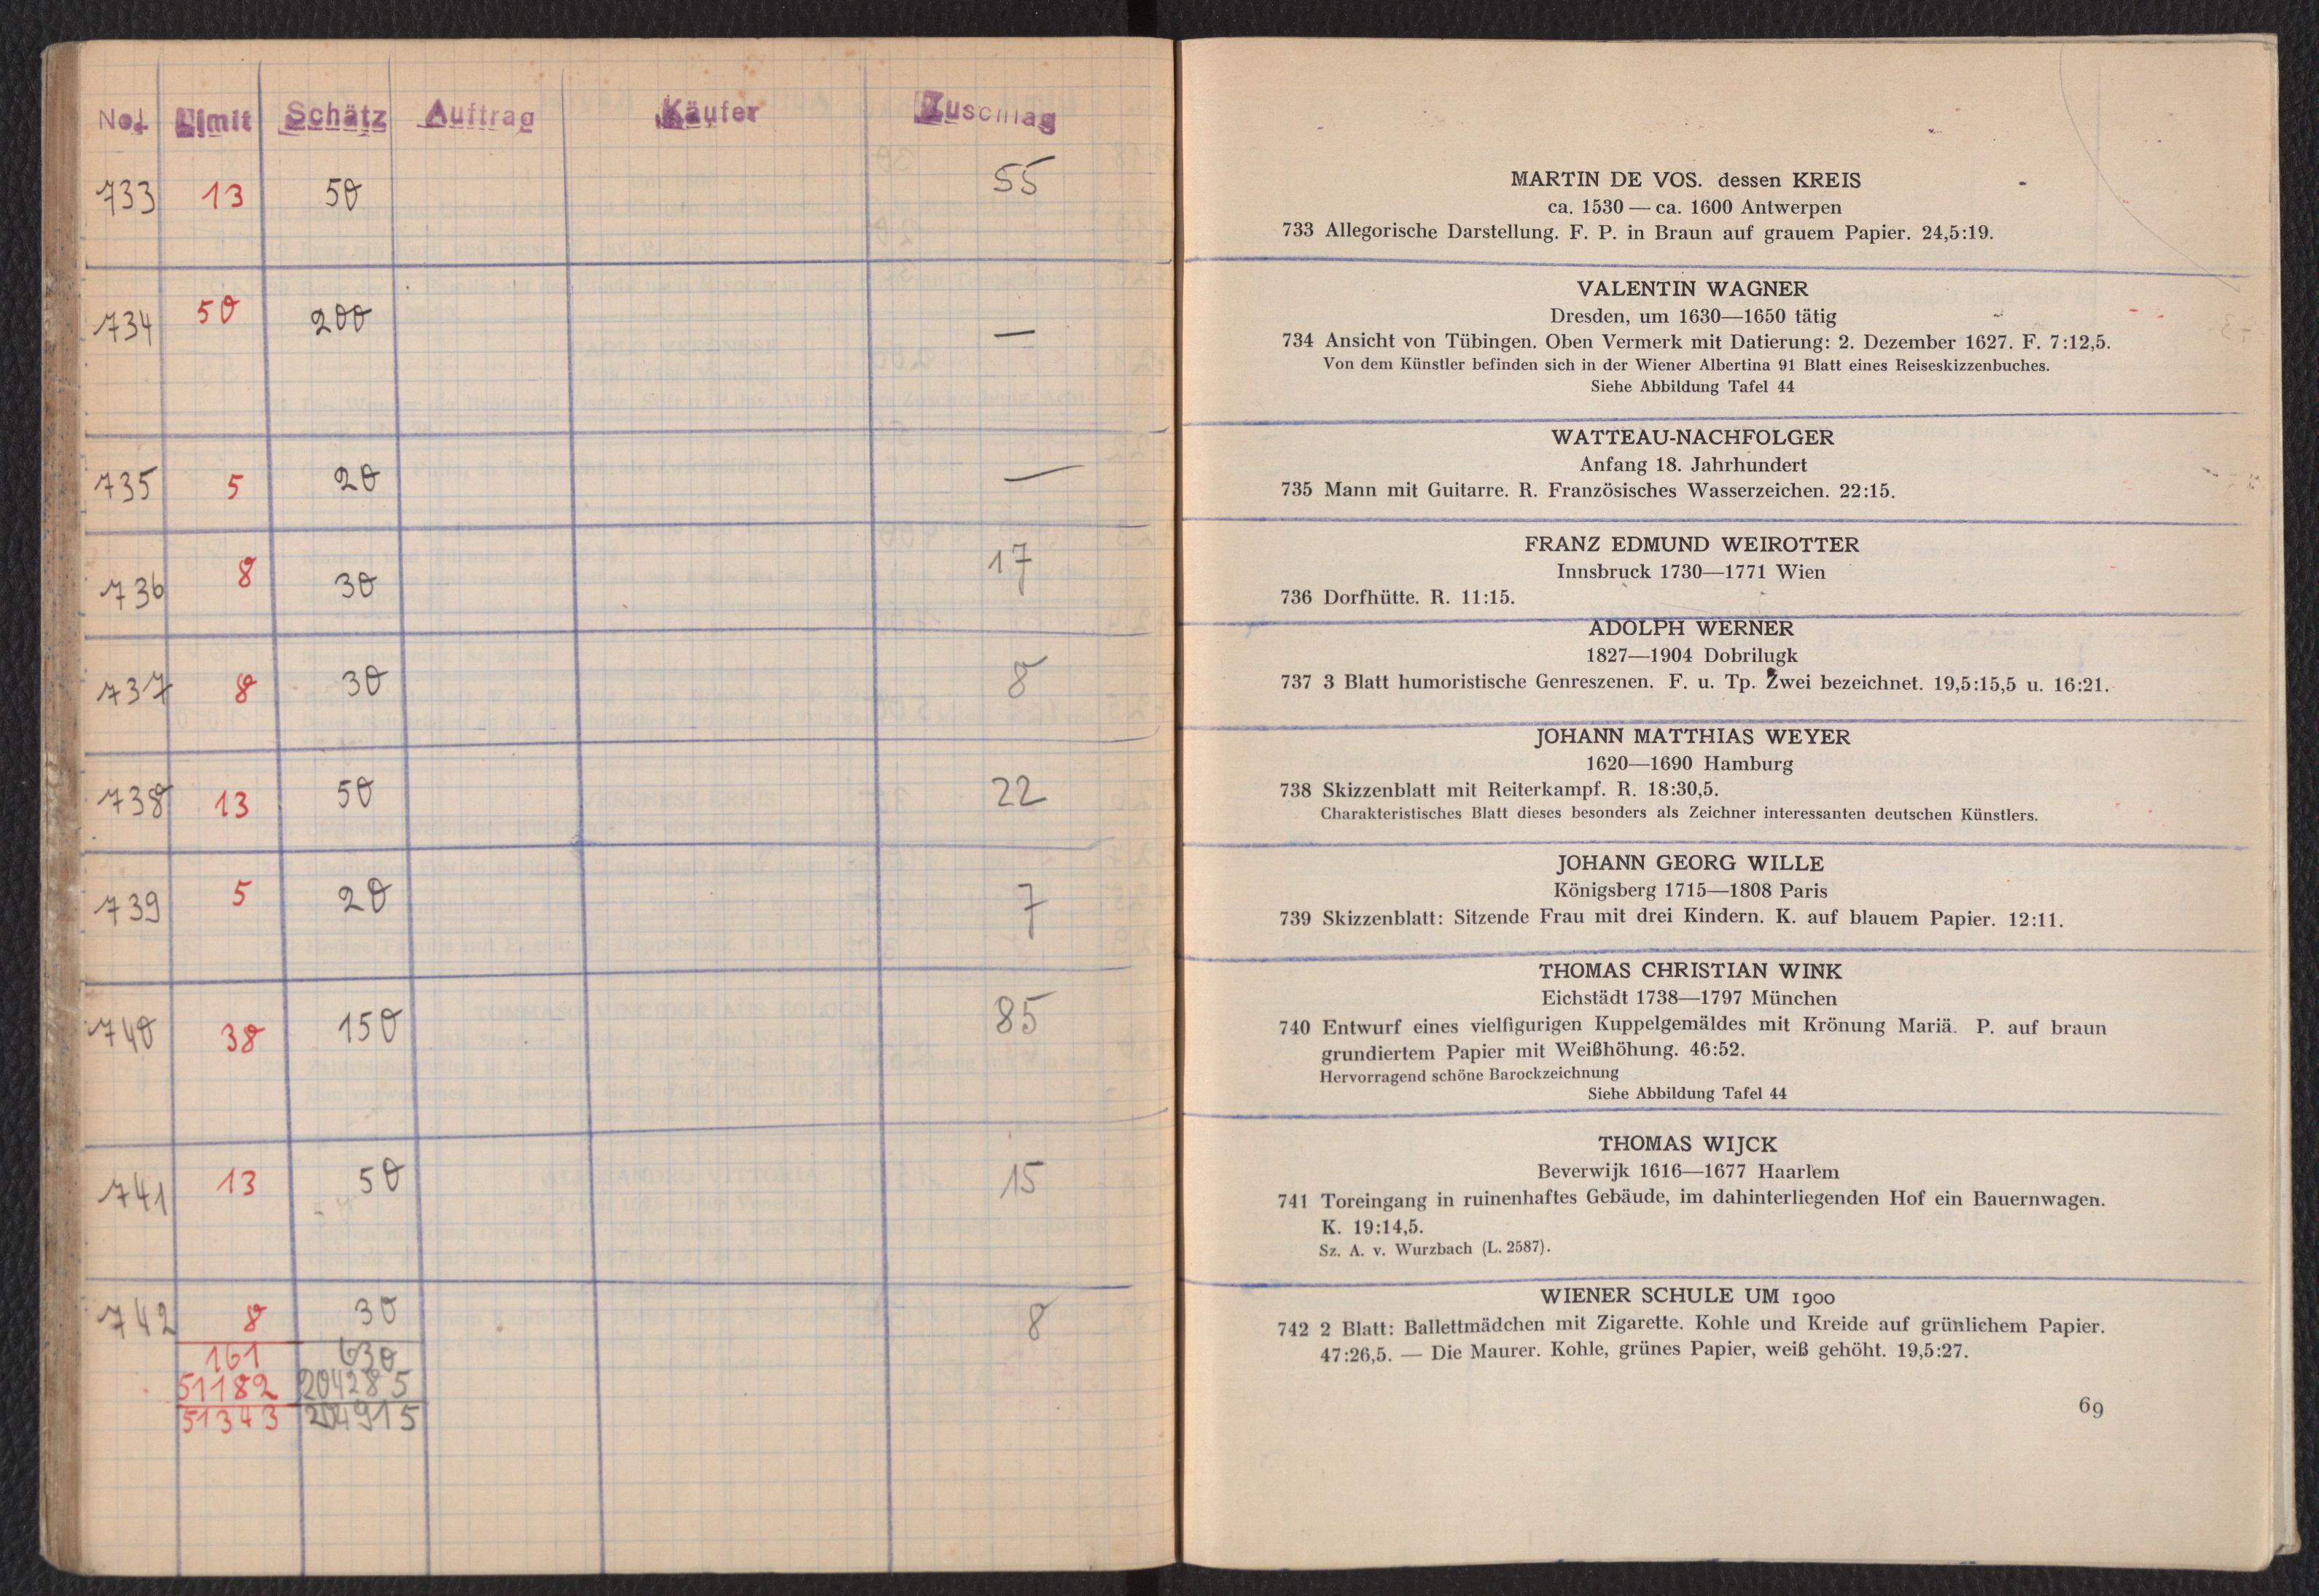 No. Limit Schätz Auftrag Käufer Zuschlag
733 13 50 55
734 50 200 —
735 5 20 —
736 8 30 17
737 8 30 8
738 13 50 22
739 5 20 7
740 38 150 85
741 13 50 15
742 8 30 8
161 630
51182 204285
51343 204915
MARTIN DE VOS. dessen KREIS
ca. 1530 — ca. 1600 Antwerpen
733 Allegorische Darstellung. F. P. in Braun auf grauem Papier. 24,5:19.
VALENTIN WAGNER
Dresden, um 1630—1650 tätig
734 Ansicht von Tübingen. Oben Vermerk mit Datierung: 2. Dezember 1627. F. 7:12,5.
Von dem Künstler befinden sich in der Wiener Albertina 91 Blatt eines Reiseskizzenbuches.
Siehe Abbildung Tafel 44
WATTEAU-NACHFOLGER
Anfang 18. Jahrhundert
735 Mann mit Guitarre. R. Französisches Wasserzeichen. 22:15.
FRANZ EDMUND WEIROTTER
Innsbruck 1730—1771 Wien
736 Dorfhütte. R. 11:15.
ADOLPH WERNER
1827—1904 Dobrilugk
737 3 Blatt humoristische Genreszenen. F. u. Tp. Zwei bezeichnet. 19,5:15,5 u. 16:21.
JOHANN MATTHIAS WEYER
1620—1690 Hamburg
738 Skizzenblatt mit Reiterkampf. R. 18:30,5.
Charakteristisches Blatt dieses besonders als Zeichner interessanten deutschen Künstlers.
JOHANN GEORG WILLE
Königsberg 1715—1808 Paris
739 Skizzenblatt: Sitzende Frau mit drei Kindern. K. auf blauem Papier. 12:11.
THOMAS CHRISTIAN WINK
Eichstädt 1738—1797 München
740 Entwurf eines vielfigurigen Kuppelgemäldes mit Krönung Mariä. P. auf braun
grundiertem Papier mit Weißhöhung. 46:52.
Hervorragend schöne Barockzeichnung
Siehe Abbildung Tafel 44
THOMAS WIJCK
Beverwijk 1616—1677 Haarlem
741 Toreingang in ruinenhaftes Gebäude, im dahinterliegenden Hof ein Bauernwagen.
K. 19:14,5.
Sz. A. v. Wurzbach (L. 2587).
WIENER SCHULE UM 1900
742 2 Blatt: Ballettmädchen mit Zigarette. Kohle und Kreide auf grünlichem Papier.
47:26,5. — Die Maurer. Kohle, grünes Papier, weiß gehöht. 19,5:27.
69